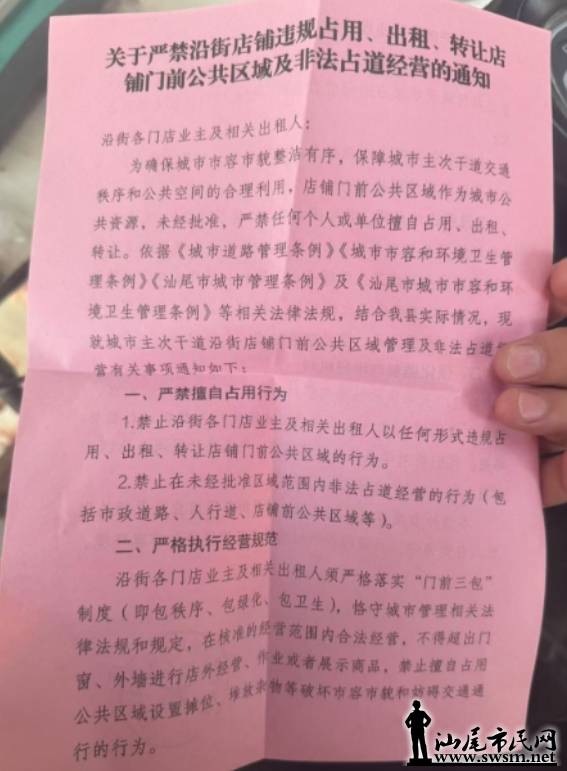 关于严禁沿街店铺违规占用、出租、转让店
铺门前公共区域及非法占道经营的通知
沿街各门店业主及相关出租人：
为确保城市市容市貌整洁有序，保障城市主次干道交通
秩序和公共空间的合理利用，店铺门前公共区域作为城市公
共资源，未经批准，严禁任何个人或单位擅自占用、出租、
转让。依据《城市道路管理条例》《城市市容和环境卫生管
理条例》《汕尾市城市管理条例》及《汕尾市城市市容和环
境卫生管理条例》等相关法律法规，结合我县实际情况，现
就城市主次干道沿街店铺门前公共区域管理及非法占道经
营有关事项通知如下：
一、严禁擅自占用行为
1.禁止沿街各门店业主及相关出租人以任何形式违规占
用、出租、转让店铺门前公共区域的行为。
2.禁止在未经批准区域范围内非法占道经营的行为（包
括市政道路、人行道、店铺前公共区域等）。
二、严格执行经营规范
沿街各门店业主及相关出租人须严格落实“门前三包”
制度（即包秩序、包绿化、包卫生），恪守城市管理相关法
律法规和规定，在核准的经营范围内合法经营，不得超出门
窗、外墙进行店外经营、作业或者展示商品，禁止擅自占用
公共区域设置摊位、堆放杂物等破坏市容市貌和妨碍交通通
行的行为。
汕尾市民网
www.swsm.net